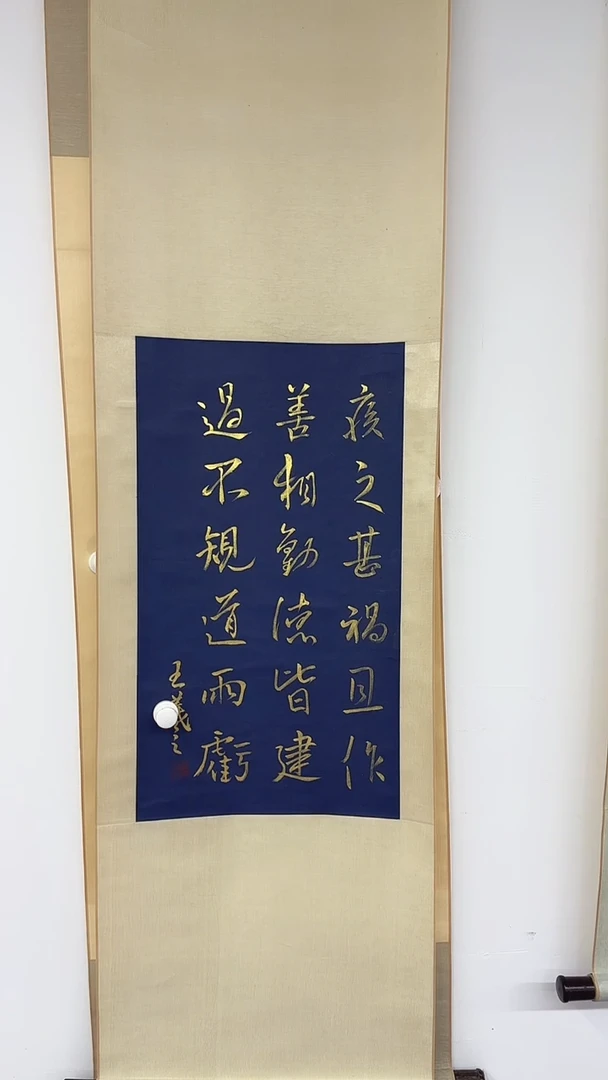 疾之甚禍且作
善相勸德皆建
過不規道兩虧
王羲之